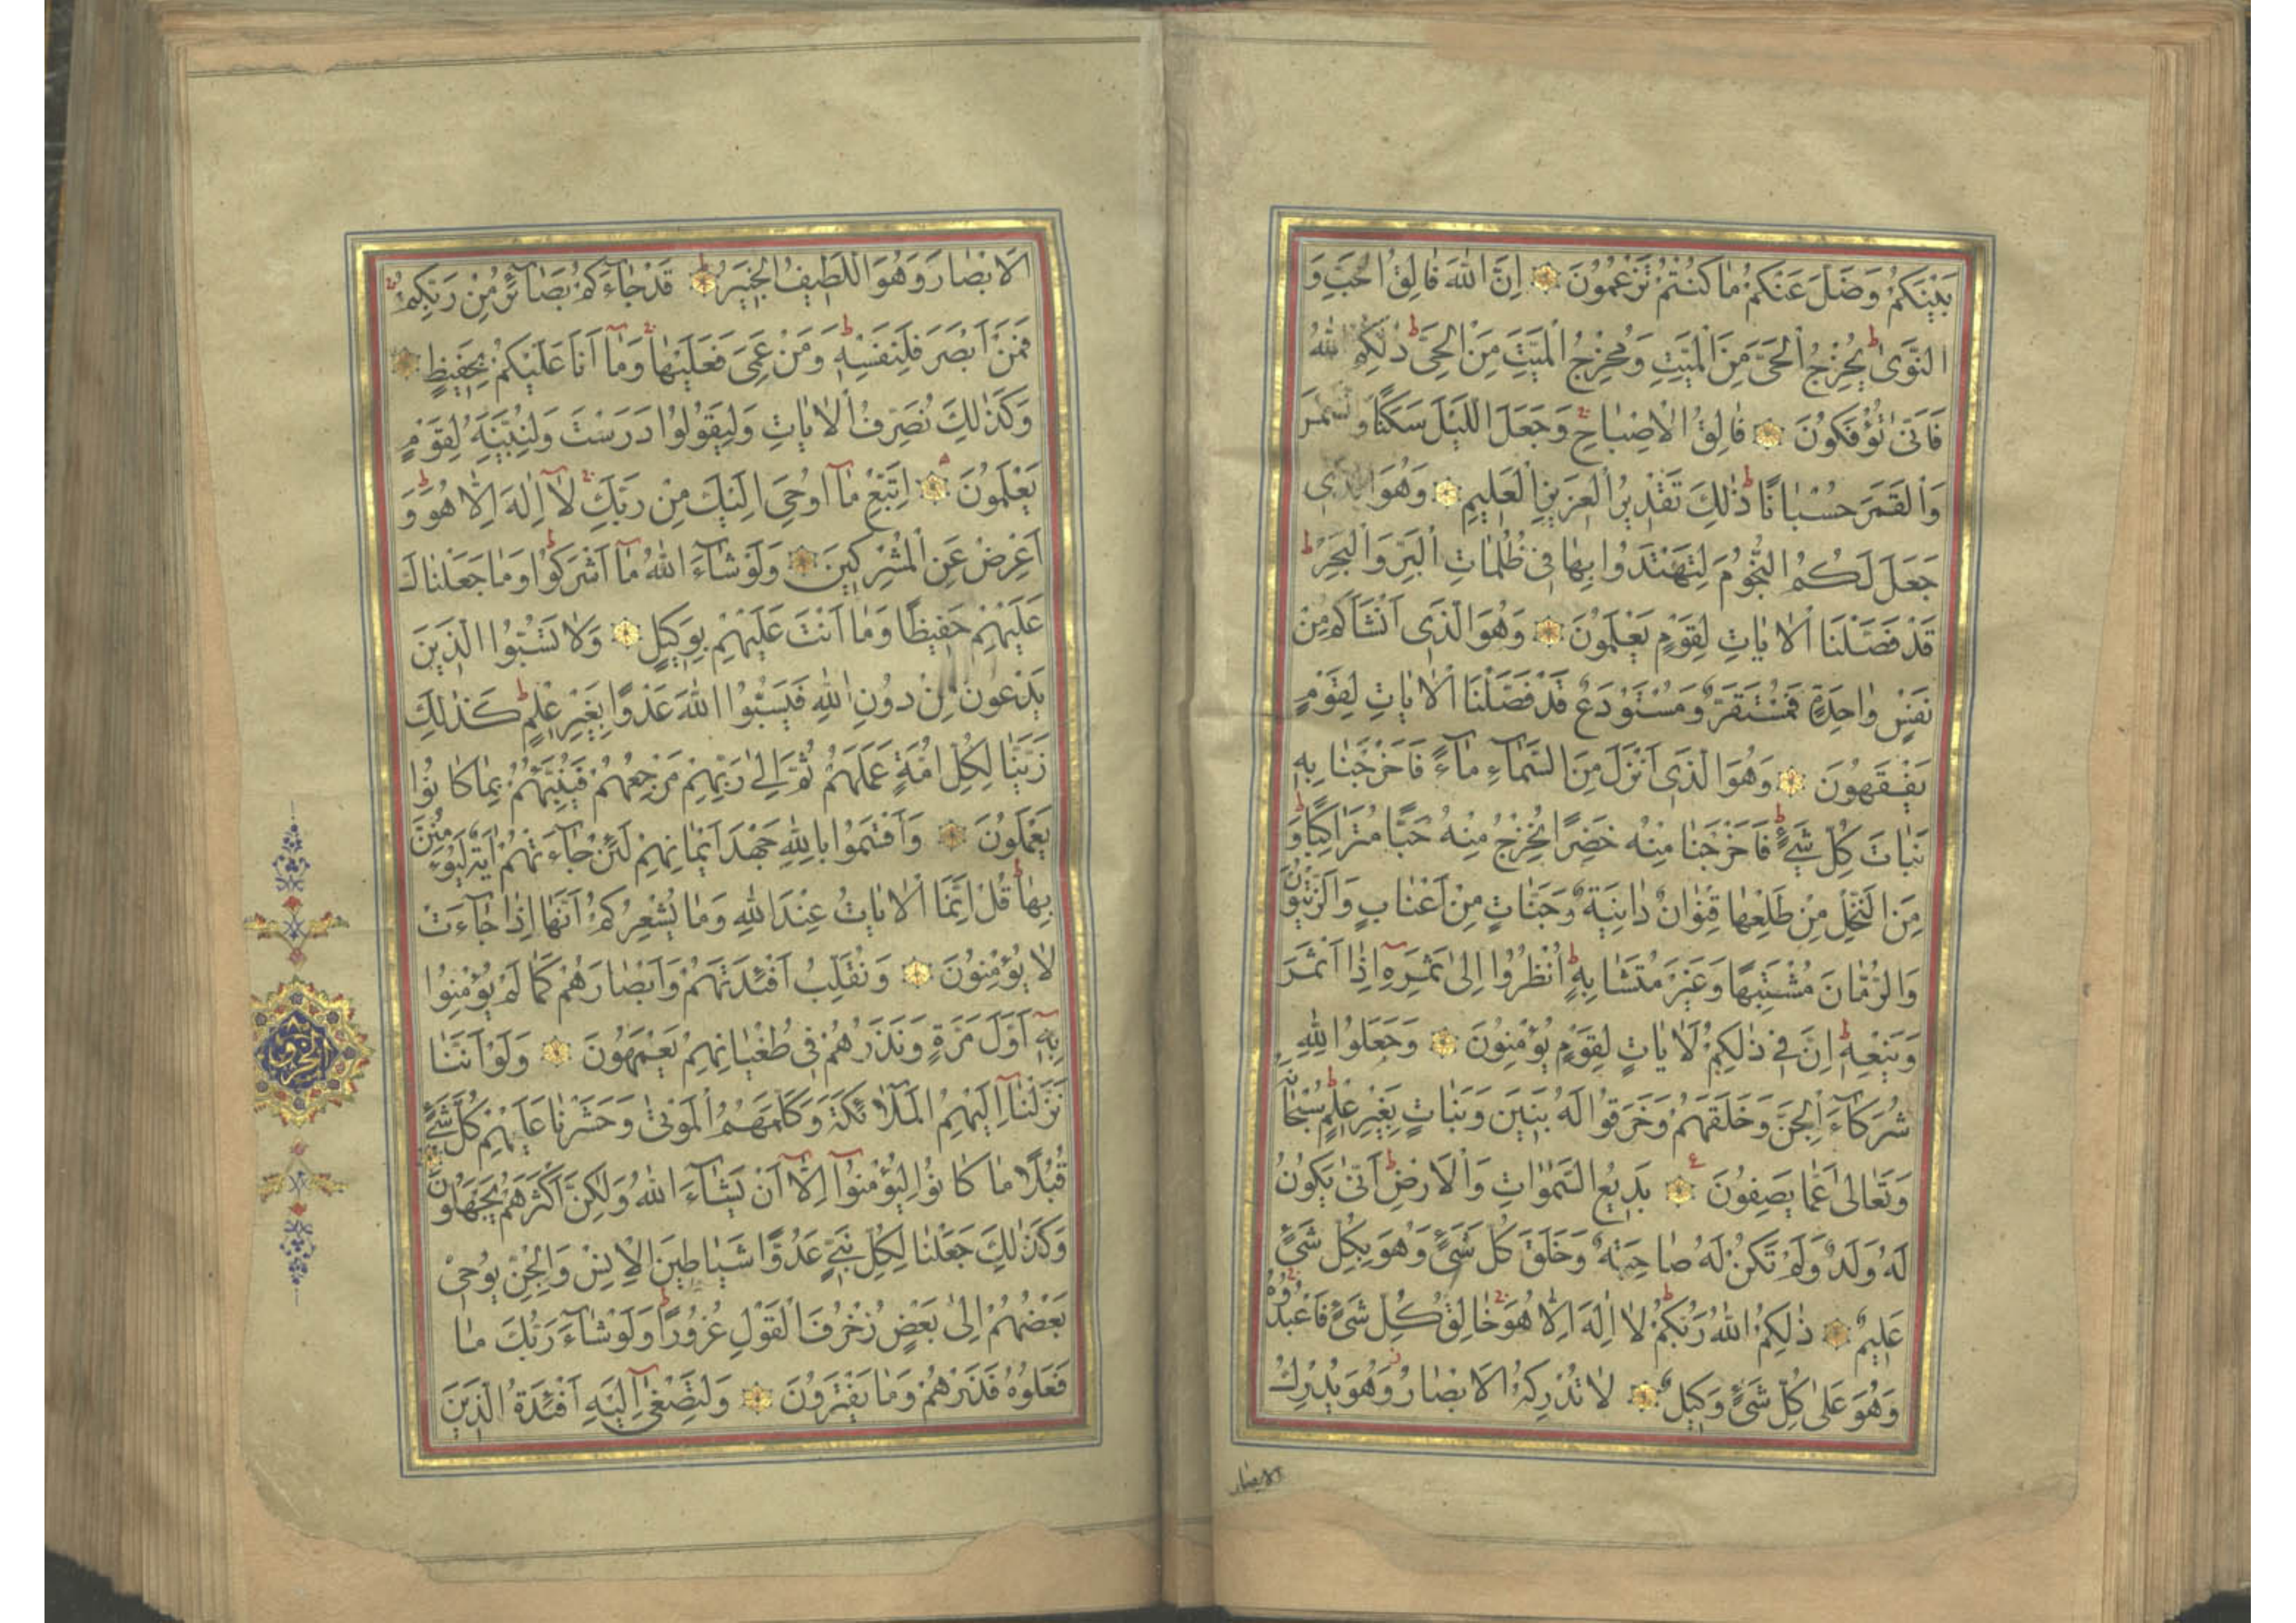 بَيْنَكُمْ وَضَلَّ عَنْكُمْ مَا كُنْتُمْ تَزْعُمُونَ اِنَّ اللّٰهَ فَالِقُ الْحَبِّ وَ
النَّوٰى يُخْرِجُ الْحَىَّ مِنَ الْمَيِّتِ وَمُخْرِجُ الْمَيِّتِ مِنَ الْحَىِّ ذٰلِكُمُ اللّٰهُ
فَاَنّٰى تُؤْفَكُونَ فَالِقُ الْاِصْبَاحِ وَجَعَلَ اللَّيْلَ سَكَنًا وَالشَّمْسَ
وَالْقَمَرَ حُسْبَانًا ذٰلِكَ تَقْدِيرُ الْعَزِيزِ الْعَلِيمِ وَهُوَ الَّذِى
جَعَلَ لَكُمُ النُّجُومَ لِتَهْتَدُوا بِهَا فِى ظُلُمَاتِ الْبَرِّ وَالْبَحْرِ
قَدْ فَصَّلْنَا الْاٰيَاتِ لِقَوْمٍ يَعْلَمُونَ وَهُوَ الَّذِى اَنْشَاَكُمْ مِنْ
نَفْسٍ وَاحِدَةٍ فَمُسْتَقَرٌّ وَمُسْتَوْدَعٌ قَدْ فَصَّلْنَا الْاٰيَاتِ لِقَوْمٍ
يَفْقَهُونَ وَهُوَ الَّذِى اَنْزَلَ مِنَ السَّمَاءِ مَاءً فَاَخْرَجْنَا بِهِ
نَبَاتَ كُلِّ شَىْءٍ فَاَخْرَجْنَا مِنْهُ خَضِرًا نُخْرِجُ مِنْهُ حَبًّا مُتَرَاكِبًا وَ
مِنَ النَّخْلِ مِنْ طَلْعِهَا قِنْوَانٌ دَانِيَةٌ وَجَنَّاتٍ مِنْ اَعْنَابٍ وَالزَّيْتُونَ
وَالرُّمَّانَ مُشْتَبِهًا وَغَيْرَ مُتَشَابِهٍ اُنْظُرُوا اِلٰى ثَمَرِهِ اِذَا اَثْمَرَ
وَيَنْعِهِ اِنَّ فِى ذٰلِكُمْ لَاٰيَاتٍ لِقَوْمٍ يُؤْمِنُونَ وَجَعَلُوا لِلّٰهِ
شُرَكَاءَ الْجِنَّ وَخَلَقَهُمْ وَخَرَقُوا لَهُ بَنِينَ وَبَنَاتٍ بِغَيْرِ عِلْمٍ سُبْحَانَهُ
وَتَعَالٰى عَمَّا يَصِفُونَ بَدِيعُ السَّمٰوَاتِ وَالْاَرْضِ اَنّٰى يَكُونُ
لَهُ وَلَدٌ وَلَمْ تَكُنْ لَهُ صَاحِبَةٌ وَخَلَقَ كُلَّ شَىْءٍ وَهُوَ بِكُلِّ شَىْءٍ
عَلِيمٌ ذٰلِكُمُ اللّٰهُ رَبُّكُمْ لَا اِلٰهَ اِلَّا هُوَ خَالِقُ كُلِّ شَىْءٍ فَاعْبُدُوهُ
وَهُوَ عَلٰى كُلِّ شَىْءٍ وَكِيلٌ لَا تُدْرِكُهُ الْاَبْصَارُ وَهُوَ يُدْرِكُ
الابصار
الْاَبْصَارَ وَهُوَ اللَّطِيفُ الْخَبِيرُ قَدْ جَاءَكُمْ بَصَائِرُ مِنْ رَبِّكُمْ
فَمَنْ اَبْصَرَ فَلِنَفْسِهِ وَمَنْ عَمِىَ فَعَلَيْهَا وَمَا اَنَا عَلَيْكُمْ بِحَفِيظٍ
وَكَذٰلِكَ نُصَرِّفُ الْاٰيَاتِ وَلِيَقُولُوا دَرَسْتَ وَلِنُبَيِّنَهُ لِقَوْمٍ
يَعْلَمُونَ اِتَّبِعْ مَا اُوحِىَ اِلَيْكَ مِنْ رَبِّكَ لَا اِلٰهَ اِلَّا هُوَ وَ
اَعْرِضْ عَنِ الْمُشْرِكِينَ وَلَوْ شَاءَ اللّٰهُ مَا اَشْرَكُوا وَمَا جَعَلْنَاكَ
عَلَيْهِمْ حَفِيظًا وَمَا اَنْتَ عَلَيْهِمْ بِوَكِيلٍ وَلَا تَسُبُّوا الَّذِينَ
يَدْعُونَ مِنْ دُونِ اللّٰهِ فَيَسُبُّوا اللّٰهَ عَدْوًا بِغَيْرِ عِلْمٍ كَذٰلِكَ
زَيَّنَّا لِكُلِّ اُمَّةٍ عَمَلَهُمْ ثُمَّ اِلٰى رَبِّهِمْ مَرْجِعُهُمْ فَيُنَبِّئُهُمْ بِمَا كَانُوا
يَعْمَلُونَ وَاَقْسَمُوا بِاللّٰهِ جَهْدَ اَيْمَانِهِمْ لَئِنْ جَاءَتْهُمْ اٰيَةٌ لَيُؤْمِنُنَّ
بِهَا قُلْ اِنَّمَا الْاٰيَاتُ عِنْدَ اللّٰهِ وَمَا يُشْعِرُكُمْ اَنَّهَا اِذَا جَاءَتْ
لَا يُؤْمِنُونَ وَنُقَلِّبُ اَفْئِدَتَهُمْ وَاَبْصَارَهُمْ كَمَا لَمْ يُؤْمِنُوا
بِهِ اَوَّلَ مَرَّةٍ وَنَذَرُهُمْ فِى طُغْيَانِهِمْ يَعْمَهُونَ وَلَوْ اَنَّنَا
نَزَّلْنَا اِلَيْهِمُ الْمَلَائِكَةَ وَكَلَّمَهُمُ الْمَوْتٰى وَحَشَرْنَا عَلَيْهِمْ كُلَّ شَىْءٍ
قُبُلًا مَا كَانُوا لِيُؤْمِنُوا اِلَّا اَنْ يَشَاءَ اللّٰهُ وَلٰكِنَّ اَكْثَرَهُمْ يَجْهَلُونَ
وَكَذٰلِكَ جَعَلْنَا لِكُلِّ نَبِىٍّ عَدُوًّا شَيَاطِينَ الْاِنْسِ وَالْجِنِّ يُوحِى
بَعْضُهُمْ اِلٰى بَعْضٍ زُخْرُفَ الْقَوْلِ غُرُورًا وَلَوْ شَاءَ رَبُّكَ مَا
فَعَلُوهُ فَذَرْهُمْ وَمَا يَفْتَرُونَ وَلِتَصْغٰى اِلَيْهِ اَفْئِدَةُ الَّذِينَ